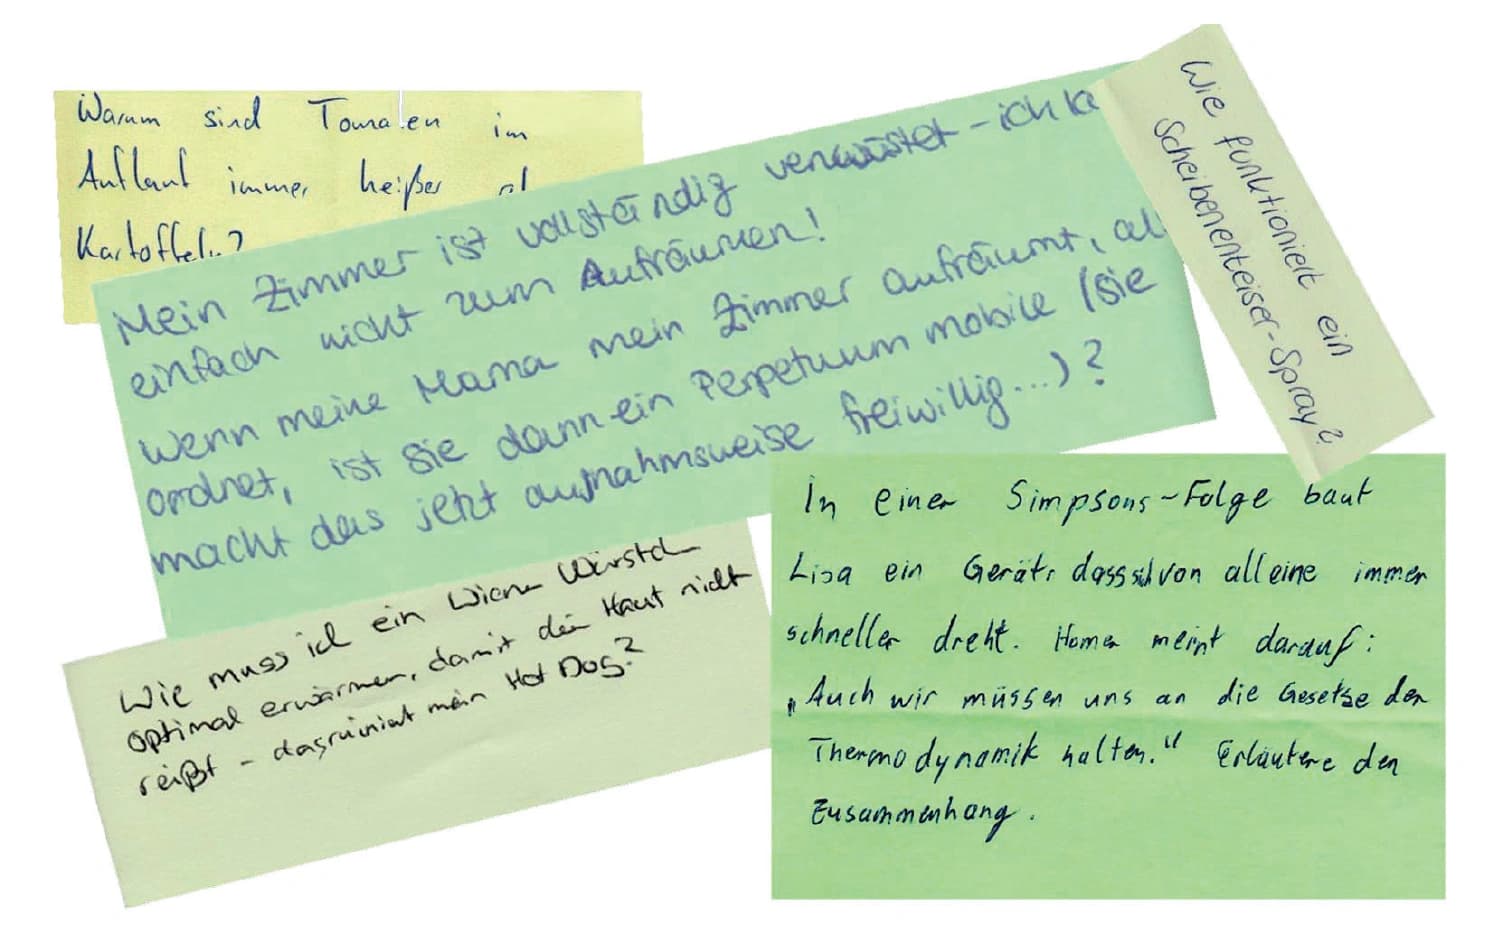 Warum sind Tomaten im
Auflauf immer heißer al
Kartoffeln?
Mein Zimmer ist vollständig verwüstet - ich ka
einfach nicht zum Aufräumen!
Wenn meine Mama mein Zimmer aufräumt, al
ordnet, ist sie dann ein Perpetuum mobile (sie
macht das jetzt ausnahmsweise freiwillig...)?
Wie funktioniert ein
Scheibenenteiser-Spray?
Wie muss ich ein Wiener Würstch
optimal erwärmen, damit die Haut nicht
reißt - das ruiniert mein Hot Dog?
In einer Simpsons-Folge baut
Lisa ein Gerät, dass sich von alleine immer
schneller dreht. Homer meint darauf:
„Auch wir müssen uns an die Gesetze der
Thermodynamik halten." Erläutere den
Zusammenhang.